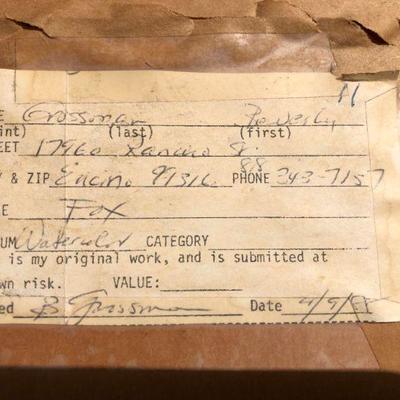 11
E Grossman Beverly
int) (last) (first)
EET 17960 Rancho St.
& ZIP Encino 91316 PHONE 343-7157
88
E Fox
UM Watercolor CATEGORY
is my original work, and is submitted at
wn risk. VALUE:
ed B Grossman Date 4/9/88